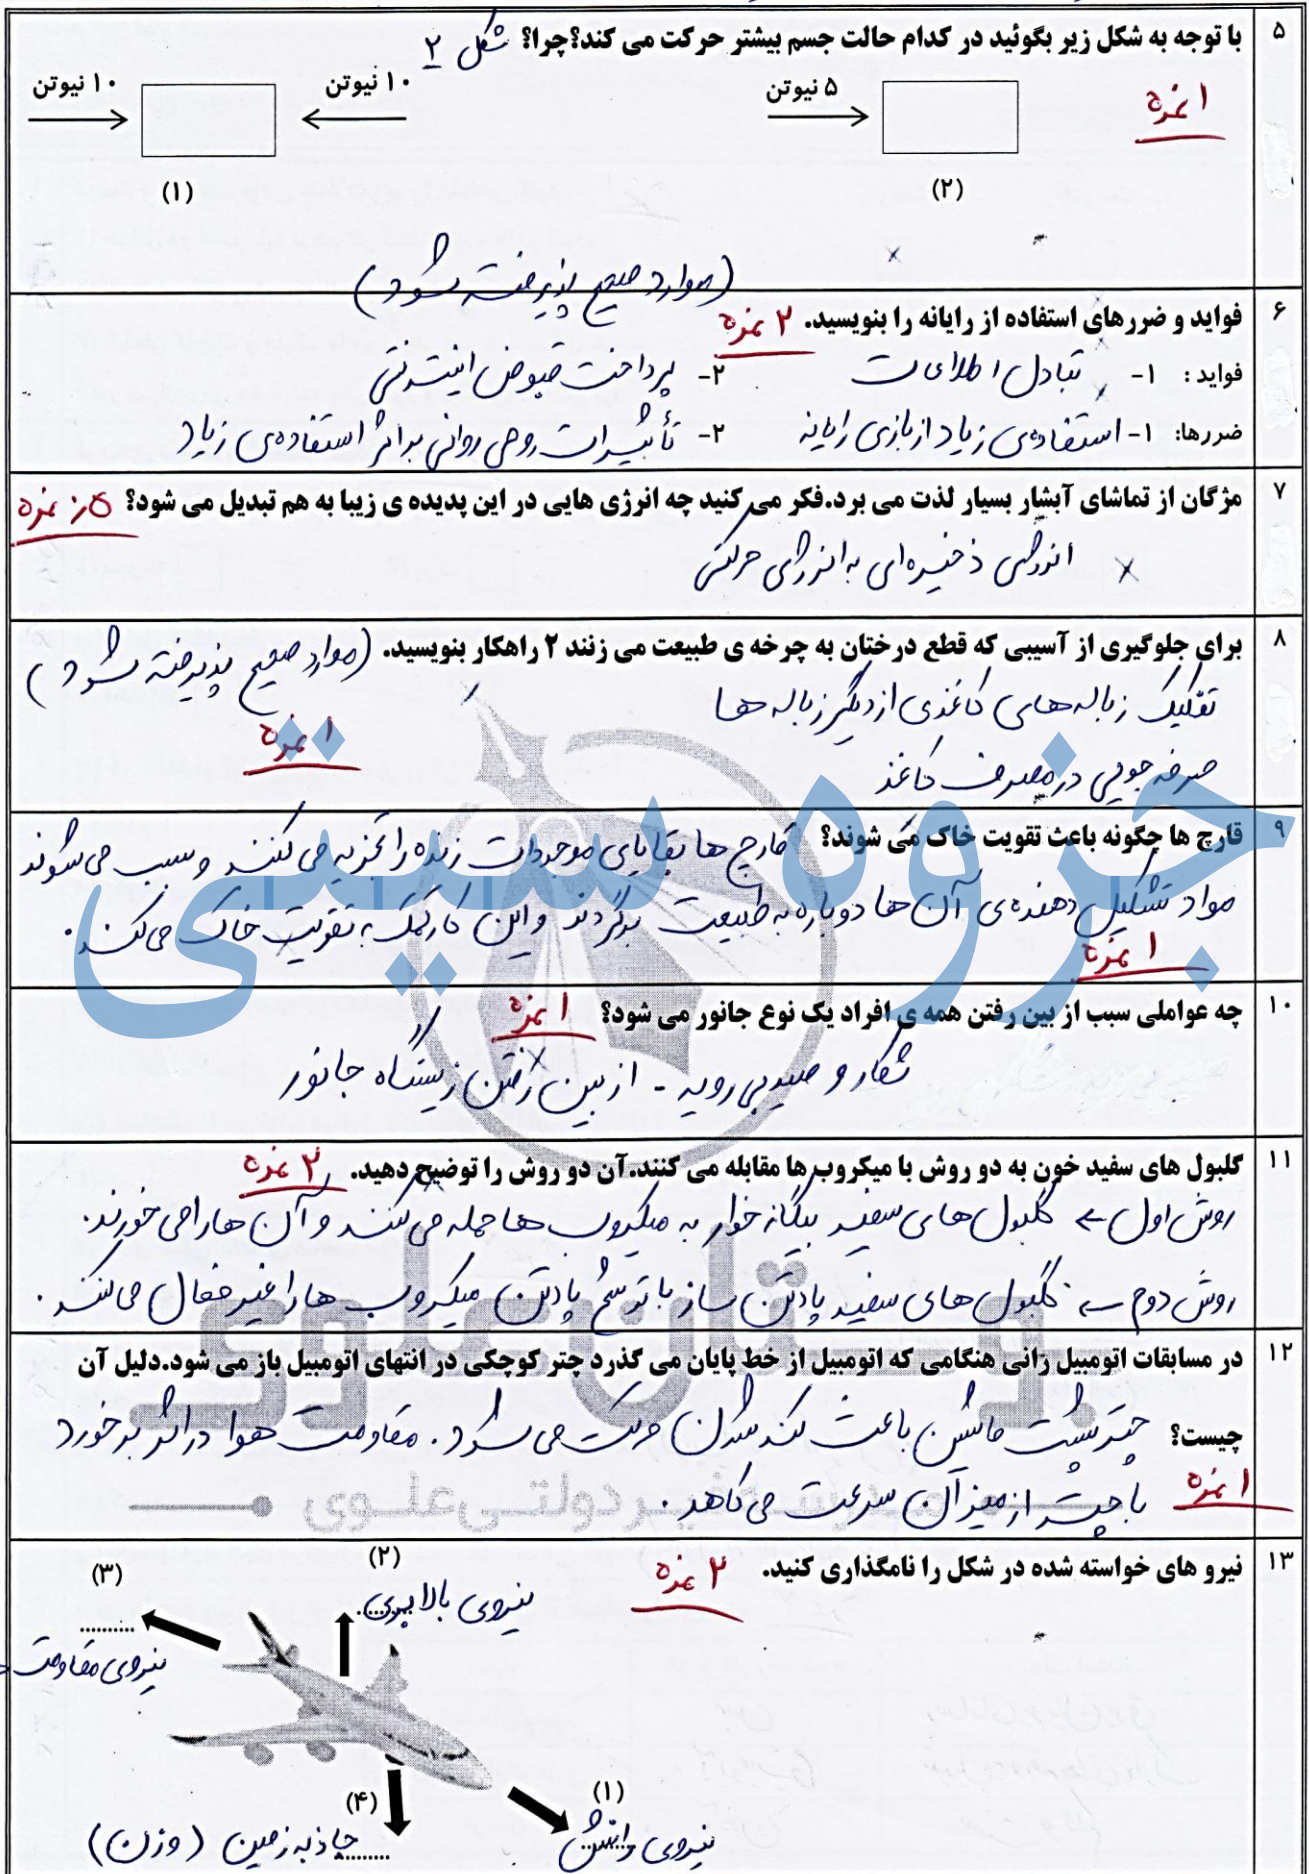 ۵ با توجه به شکل زیر بگوئید در کدام حالت جسم بیشتر حرکت می کند؟چرا؟ شکل ۲
۱ نمره
۵ نیوتن
۱۰ نیوتن
۱۰ نیوتن
(۲)
(۱)
(موارد صحیح پذیرفته شود)
۶ فواید و ضررهای استفاده از رایانه را بنویسید. ۲ نمره
فواید : ۱- تبادل اطلاعات ۲- پرداخت قبوض اینترنتی
ضررها: ۱- استفاده‌ی زیاد از بازی رایانه ۲- تأثیرات روحی روانی بر اثر استفاده‌ی زیاد
۷ مژگان از تماشای آبشار بسیار لذت می برد.فکر می کنید چه انرژی هایی در این پدیده ی زیبا به هم تبدیل می شود؟ ۰/۵ نمره
انرژی ذخیره‌ای به انرژی حرکتی
۸ برای جلوگیری از آسیبی که قطع درختان به چرخه ی طبیعت می زنند ۲ راهکار بنویسید. (موارد صحیح پذیرفته شود)
تفکیک زباله‌های کاغذی از دیگر زباله‌ها
۱ نمره
صرفه جویی در مصرف کاغذ
جزوه سیتی
۹ قارچ ها چگونه باعث تقویت خاک می شوند؟ قارچ ها بقایای موجودات زنده را تجزیه می کنند و سبب می شوند
مواد تشکیل دهنده‌ی آن ها دوباره به طبیعت برگردند و این کار کمک به تقویت خاک می کند.
۱ نمره
۱۰ چه عواملی سبب از بین رفتن همه ی افراد یک نوع جانور می شود؟ ۱ نمره
شکار و صید بی رویه - از بین رفتن زیستگاه جانور
۱۱ گلبول های سفید خون به دو روش با میکروب ها مقابله می کنند.آن دو روش را توضیح دهید. ۲ نمره
روش اول ← گلبول های سفید بیگانه خوار به میکروب ها حمله می کنند و آن ها را می خورند.
روش دوم ← گلبول های سفید پادتن ساز با ترشح پادتن میکروب ها را غیر فعال می کنند.
بوستان علوی
۱۲ در مسابقات اتومبیل رانی هنگامی که اتومبیل از خط پایان می گذرد چتر کوچکی در انتهای اتومبیل باز می شود.دلیل آن
چیست؟ چتر پشت ماشین باعث کند شدن حرکت می شود. مقاومت هوا در اثر برخورد
با چتر از میزان سرعت می کاهد.
۱ نمره
مدرسه غیردولتی علوی
۱۳ نیرو های خواسته شده در شکل را نامگذاری کنید. ۲ نمره
(۲)
نیروی بالابری
(۳)
نیروی مقاومت
(۱)
نیروی رانش
(۴)
جاذبه زمین (وزن)